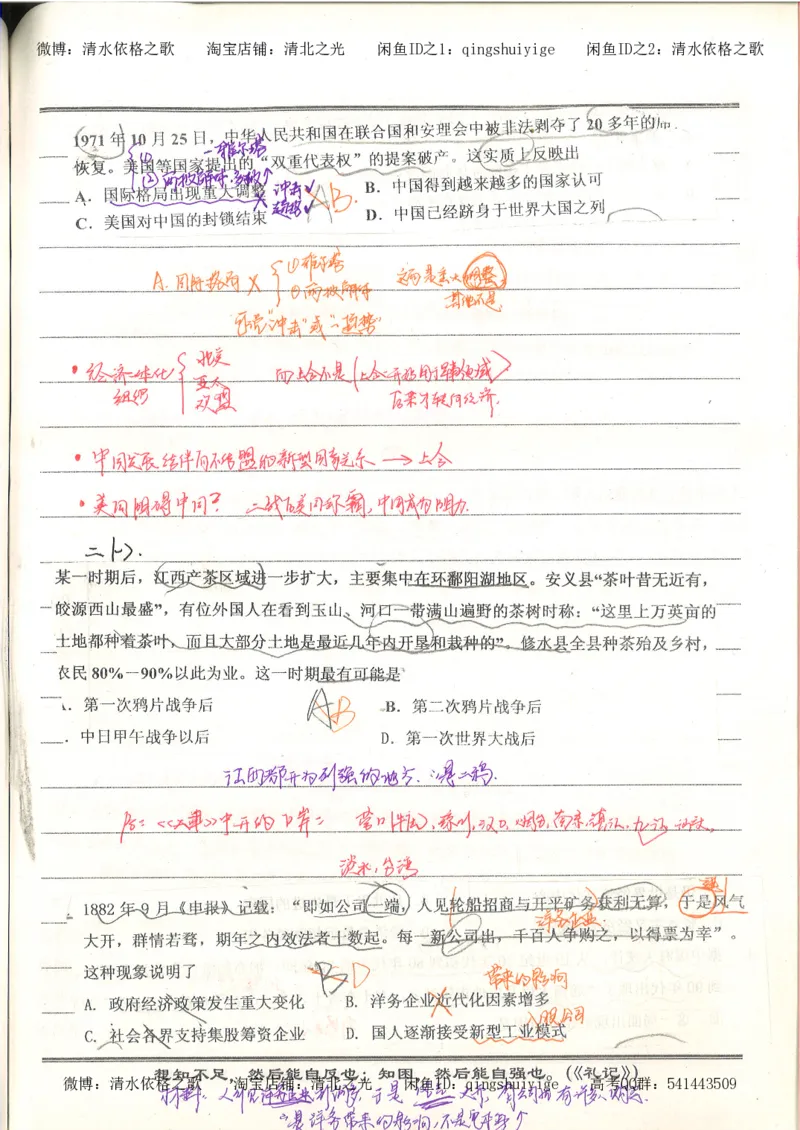 微博：清水依格之歌 淘宝店铺：清北之光 闲鱼ID之1：qingshuiyige 闲鱼ID之2：清水依格之歌
1971年10月25日，中华人民共和国在联合国和安理会中被非法剥夺了20多年的
恢复。美国等国家提出的“双重代表权”的提案破产。这实质上反映出
A．国际格局出现重大调整 B．中国得到越来越多的国家认可
C．美国对中国的封锁结束 D．中国已经跻身于世界大国之列
冲击
趋势
AB.
A. 国际格局 × ①雅尔塔
②两极解体
可说“冲击”或“趋势”
• 经济一体化 北美
组织 亚太
欧盟
后来才转向经济.
• 中国发展结伴而不结盟的新型国家关系 → 上合
• 美国阻碍中国？ 二战后美国称霸，中国成为阻力.
二卜>.
某一时期后，江西产茶区域进一步扩大，主要集中在环鄱阳湖地区。安义县“茶叶昔无近有，
皎源西山最盛”，有位外国人在看到玉山、河口一带满山遍野的茶树时称：“这里上万英亩的
土地都种着茶叶，而且大部分土地是最近几年内开垦和栽种的”。修水县全县种茶殆及乡村，
农民80%－90%以此为业。这一时期最有可能是
．第一次鸦片战争后 AB B．第二次鸦片战争后
．中日甲午战争以后 D．第一次世界大战后
江西都开为列强的地方. ∴是二鸦.
营口(牛庄), 琼州, 汉口, 烟台, 南京, 镇江, 九江
淡水, 台湾
1882年9月《申报》记载：“即如公司一端，人见轮船招商与开平矿务获利无算，于是风气
洋务企业
大开，群情若鹜，期年之内效法者十数起。每一新公司出，千百人争购之，以得票为幸”。
这种现象说明了 BD 带来的影响
A．政府经济政策发生重大变化 B．洋务企业近代化因素增多
C．社会各界支持集股筹资企业 D．国人逐渐接受新型工业模式
股公司
想知不足，然后能自反也；知困，然后能自强也。（《礼记》）
微博：清水依格之歌 淘宝店铺：清北之光 闲鱼ID：qingshuiyige 高考QQ群：541443509
∴是洋务带来的影响，不是